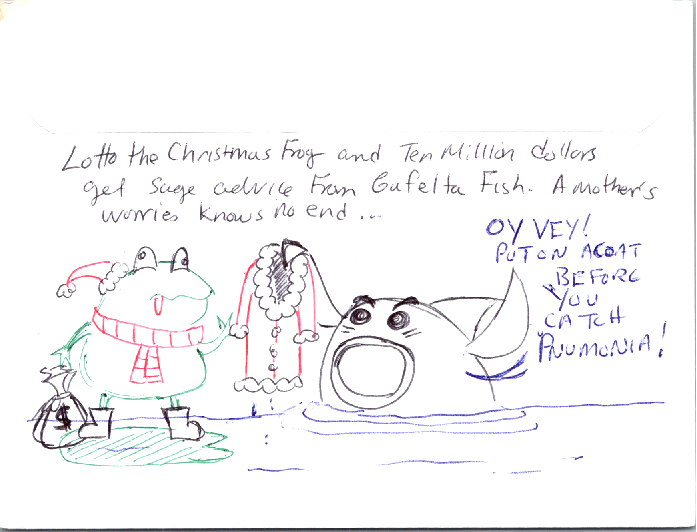 Lotto the Christmas Frog and Ten Million dollars
get sage advice From Gufelta Fish. A mother's
worries knows no end...
OY VEY!
PUT ON A COAT
BEFORE
YOU
CATCH
PNUMONIA!
$